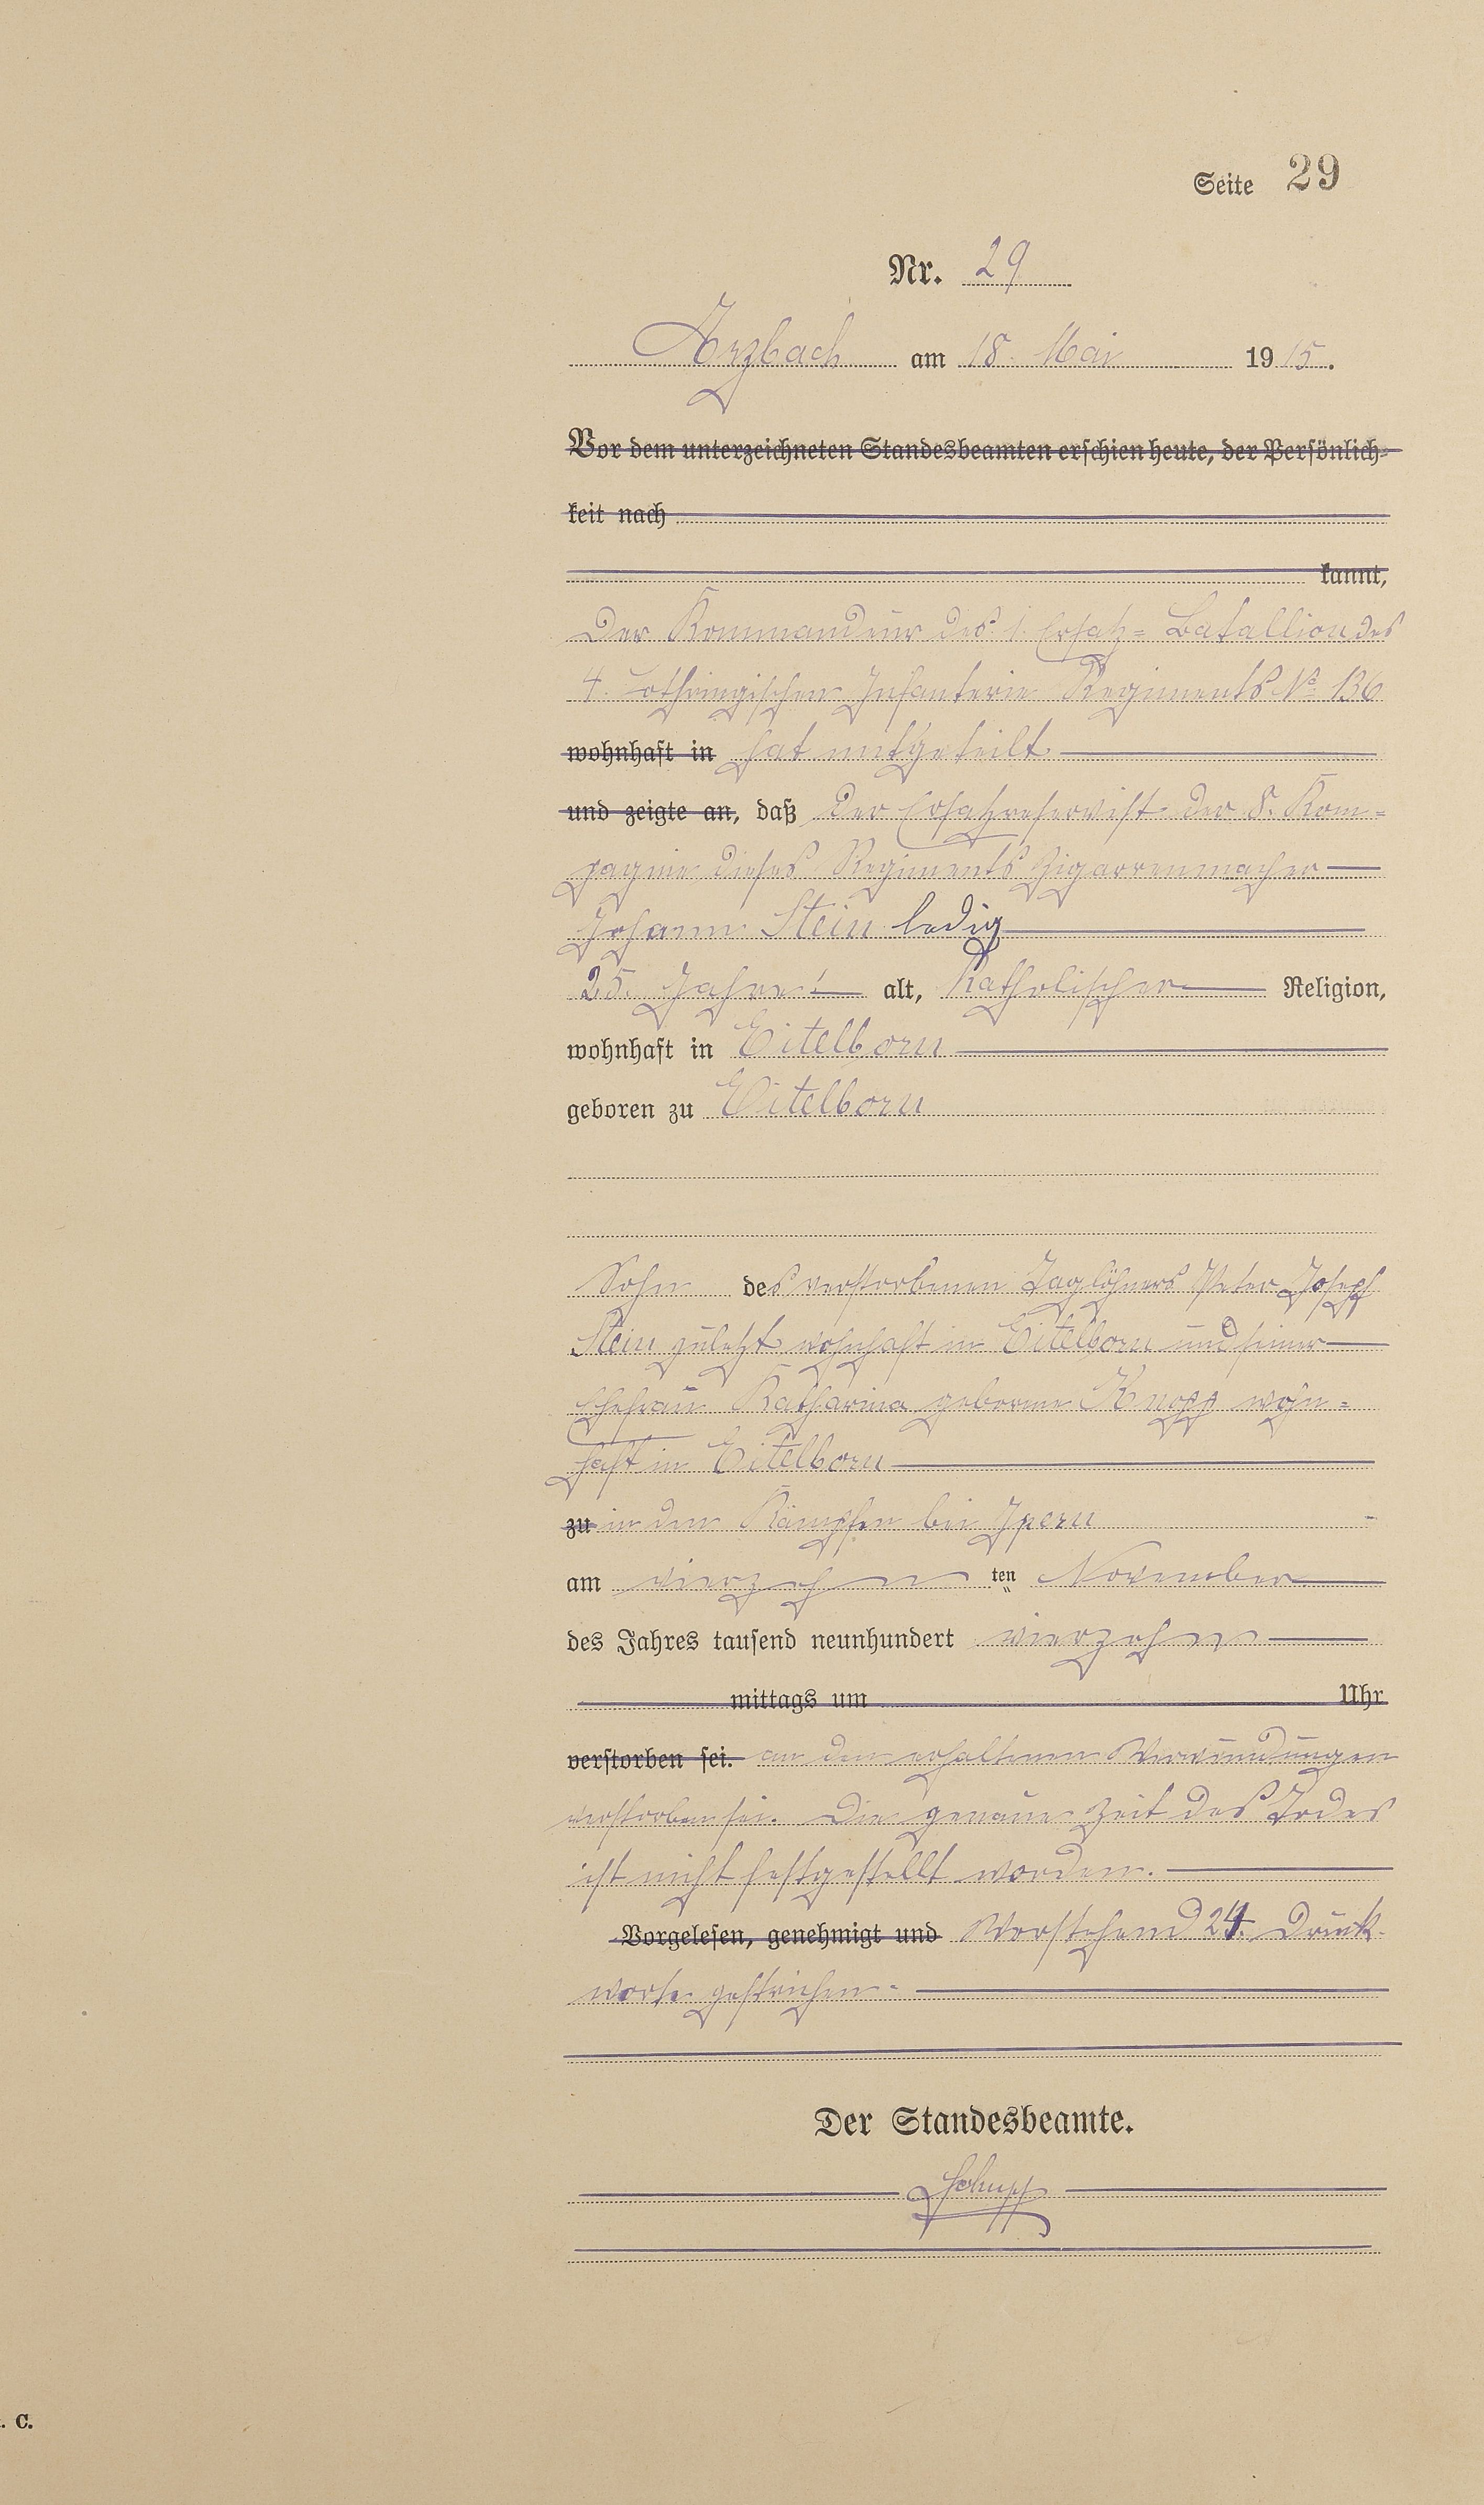 Seite 29
Nr. 29
Arzbach am 18. Mai 1915.
Vor dem unterzeichneten Standesbeamten erschien heute, der Persönlich-
keit nach
kannt,
Der Kommandeur des 1. Ersatz-Batallion des
4. Lothringischen Infanterie Regiments No 136
wohnhaft in hat mitgeteilt
und zeigte an, daß der Ersatzreservist der 8. Kom-
pagnie dieses Regiments Zigarrenmacher
Johann Stein ledig
25 Jahre alt, Katholischer Religion,
wohnhaft in Eitelborn
geboren zu Eitelborn
Sohn des verstorbenen Taglöhners Peter Joseph
Stein zuletzt wohnhaft in Eitelborn und seiner
Ehefrau Katharina geborene Knopp wohn-
haft in Eitelborn
zu in den Kämpfen bei Ypern
am vierzehn ten November
des Jahres tausend neunhundert vierzehn
mittags um Uhr
verstorben sei. an den erhaltenen Verwundungen
verstorben sei. Die genaue Zeit des Todes
ist nicht festgestellt worden.
Vorgelesen, genehmigt und Vorstehend 24 Druck-
worte gestrichen.
Der Standesbeamte.
Schupp
. C.